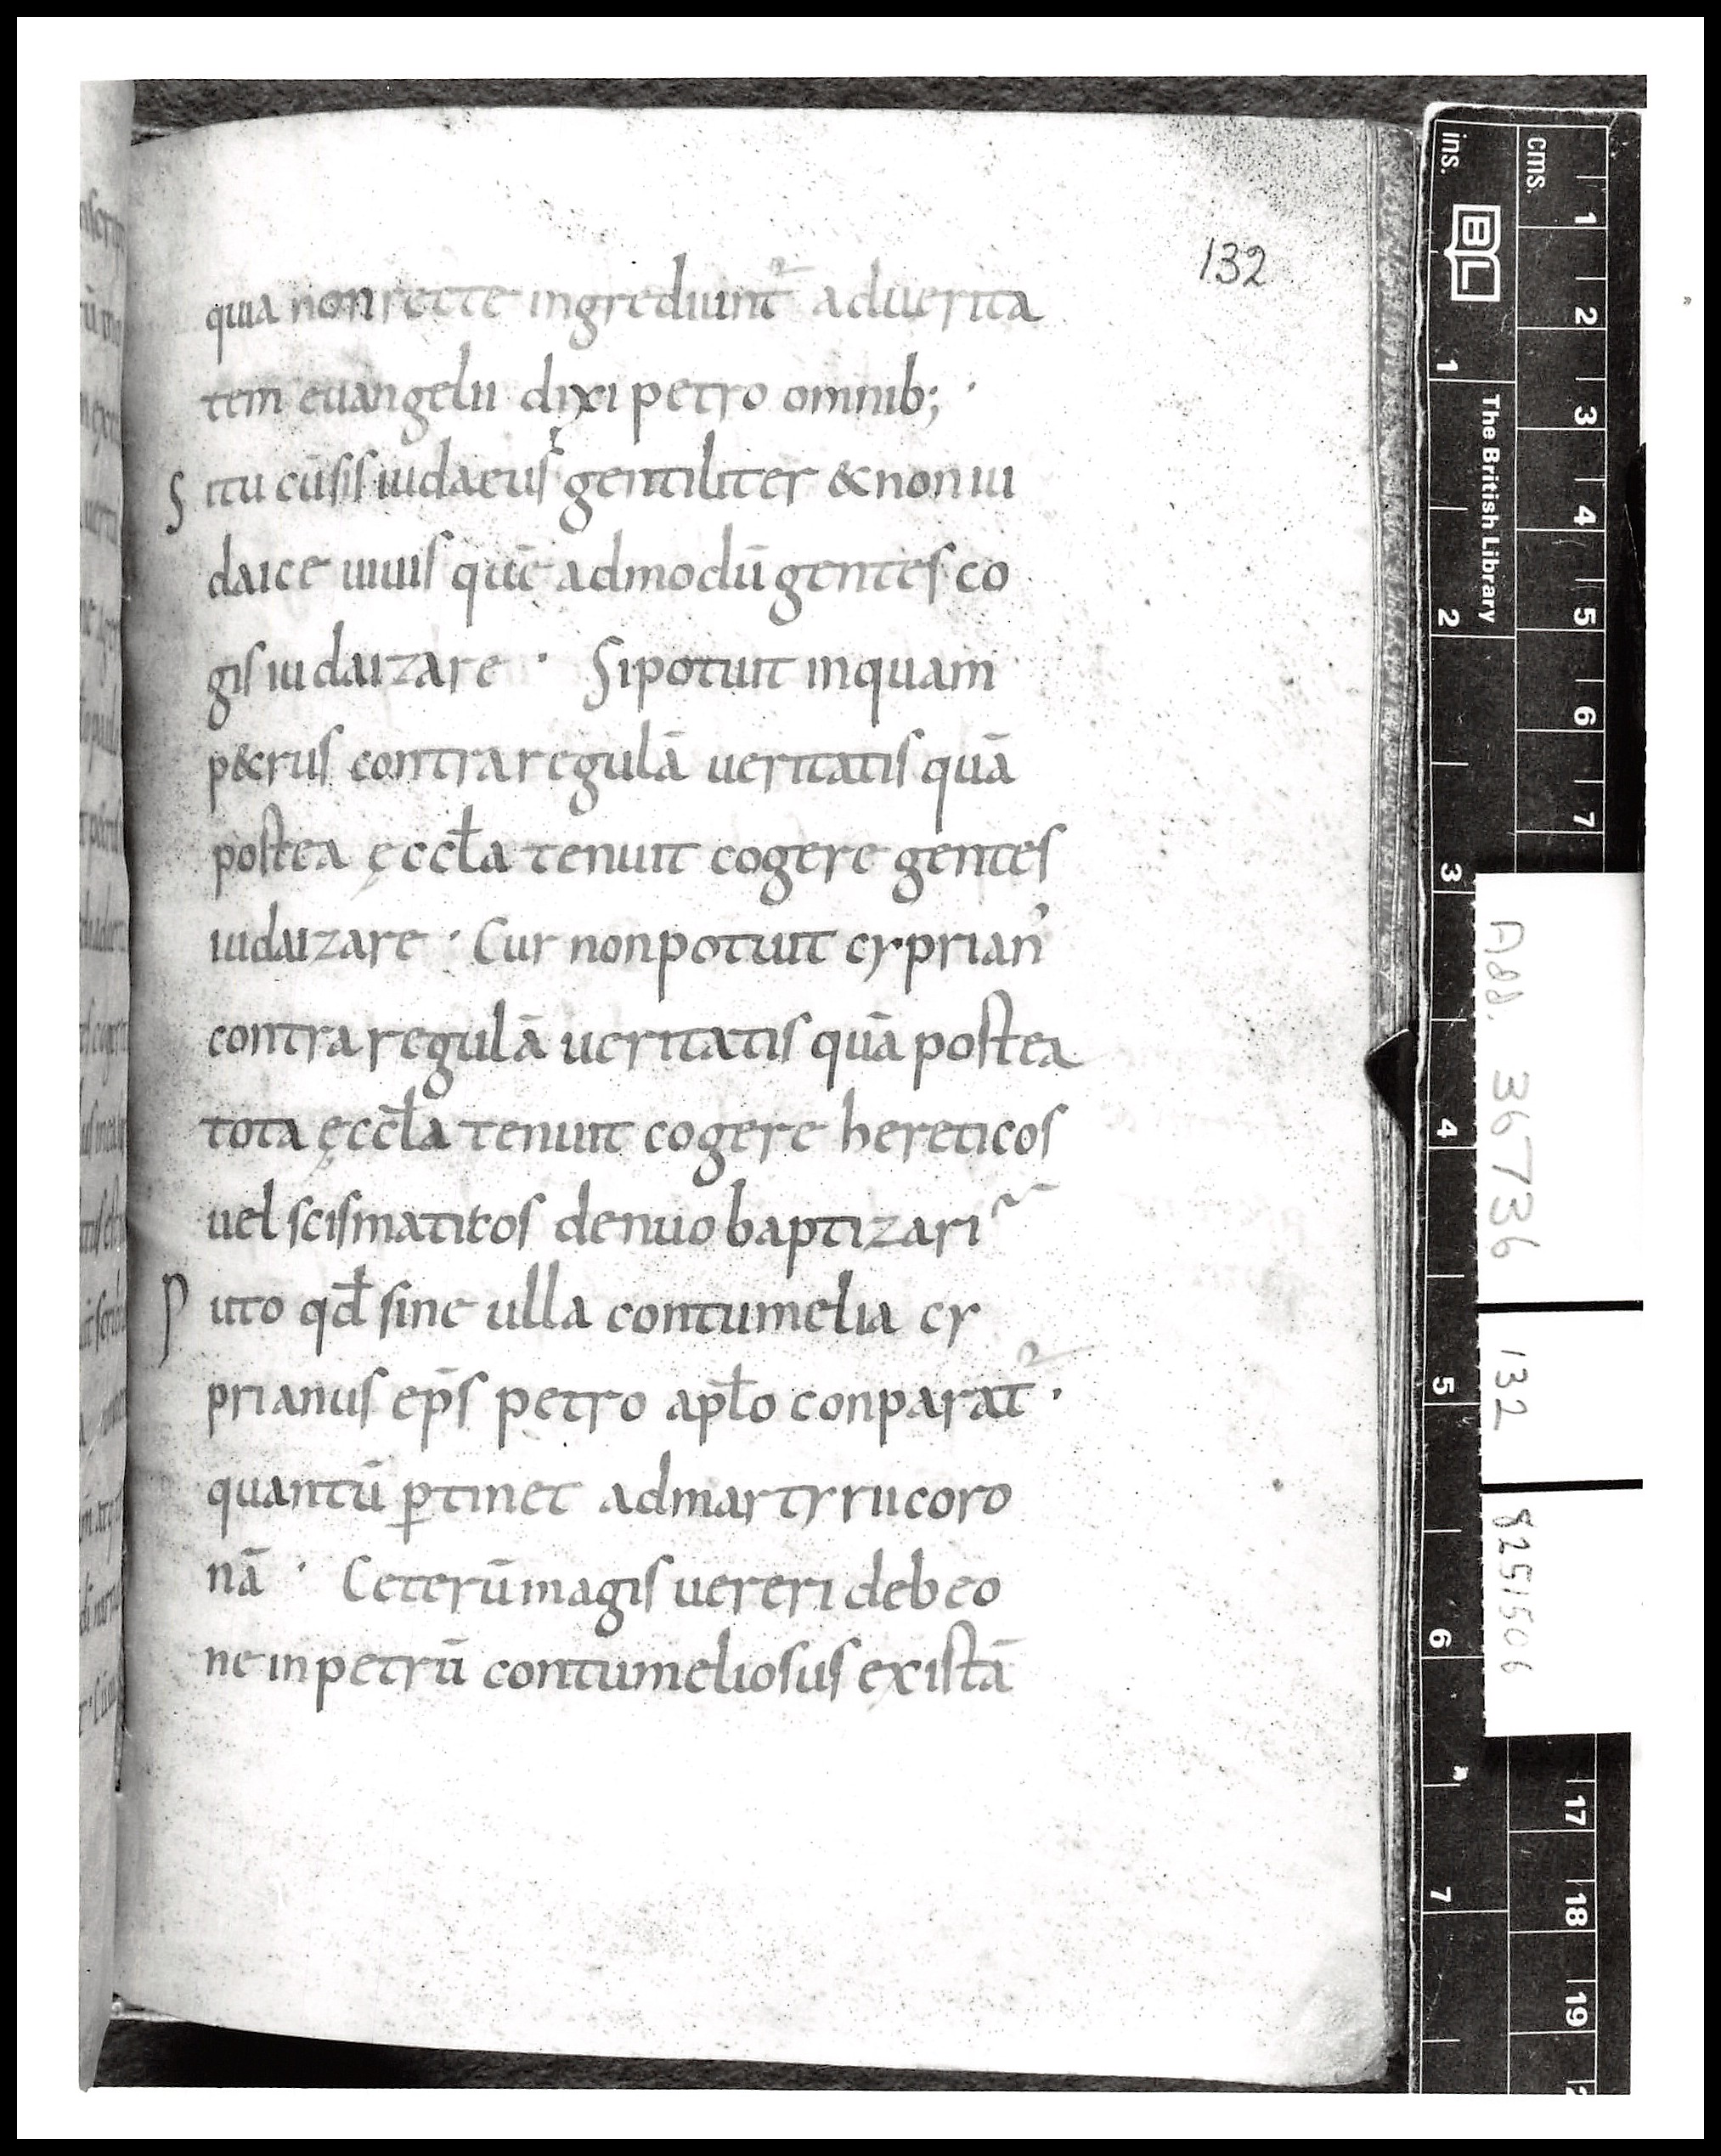 132
quia non recte ingrediunt᷑ ad uerita
tem euangelii dixi petro omnib;·
S i tu cū sis iudaeus gentiliter & non iu
daice uiuis quē admodū gentes co
gis iudaizare · Si potuit inquam
p&rus contra regulā ueritatis quā
postea ęccƚa tenuit cogere gentes
iudaizare · Cur non potuit cyprian᾽
contra regulā ueritatis quā postea
tota ęccƚa tenuit cogere hereticos
uel scismaticos denuo baptizari
P uto qđ sine ulla contumelia cy
prianus ep̄s petro apƚo conparat᷑ ·
quantū ꝑtinet ad martyrii coro
nā · Ceterū magis uereri debeo
ne in petrū contumeliosus existā
cms. 1 2 3 4 5 6 7 17 18 19
ins. 1 2 3 4 5 6 7
BL The British Library
Add. 36736
132
8251506